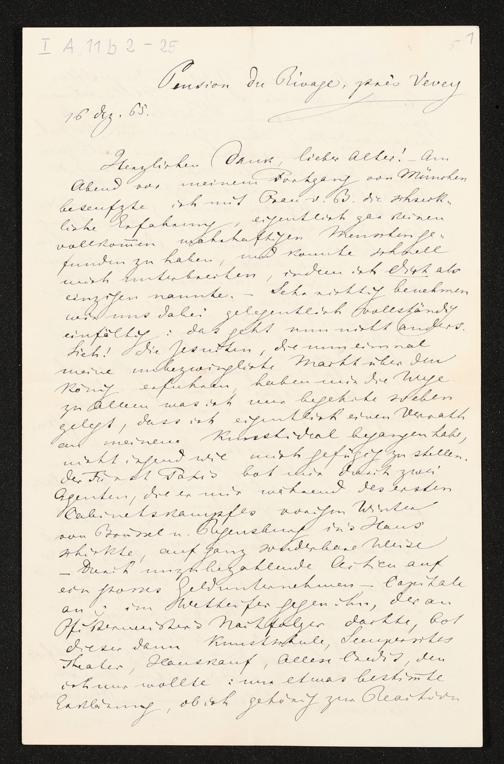 I A 11 b 2 - 25
1
Pension du Rivage, près Vevey
16 Dez. 65.
Herzlichen Dank, lieber Alter! – Am
Abend vor meinem Fortgang von München
beseufzte ich mit Frau v. B. die schreck-
liche Erfahrung, eigentlich gar keinen
vollkom̅en wahrhaftigen Menschen ge-
funden zu haben, und konnte schnell
mich unterbrechen, indem ich Dich als
einzigen nannte. – Sehr richtig benehmen
wir uns dabei gelegentlich vollständig
einfältig: das geht nun nicht anders.
Sieh! Die Jesuiten, die nun einmal
meine unbezwingliche Macht über den
König erfuhren, haben mir die Wege
zu allem was ich nur begehrte so eben
gelegt, dass ich eigentlich einen Verrath
an meinem Kunstideal begangen habe,
nicht irgend wie mich gefügig zu stellen.
Der Fürst Taxis bot mir durch zwei
Agenten, die er mir während des ersten
Cabinetskampfes vorigen Winter
von Brüssel u. Regensburg in's Haus
schickte, auf ganz sonderbare Weise
– durch unzubezahlende Actien auf
ein grosses Geldunternehmen – Capitale
an; im Wetteifer gegen ihn, der an
Pfistermeisters Nachfolger dachte, bot
dieser dann Kunstschule, Sempersches
Theater, Hauskauf, allen Credit, den
ich nur wollte: nur etwas bestim̅te
Erklärung, ob ich gehörig zur Reaction